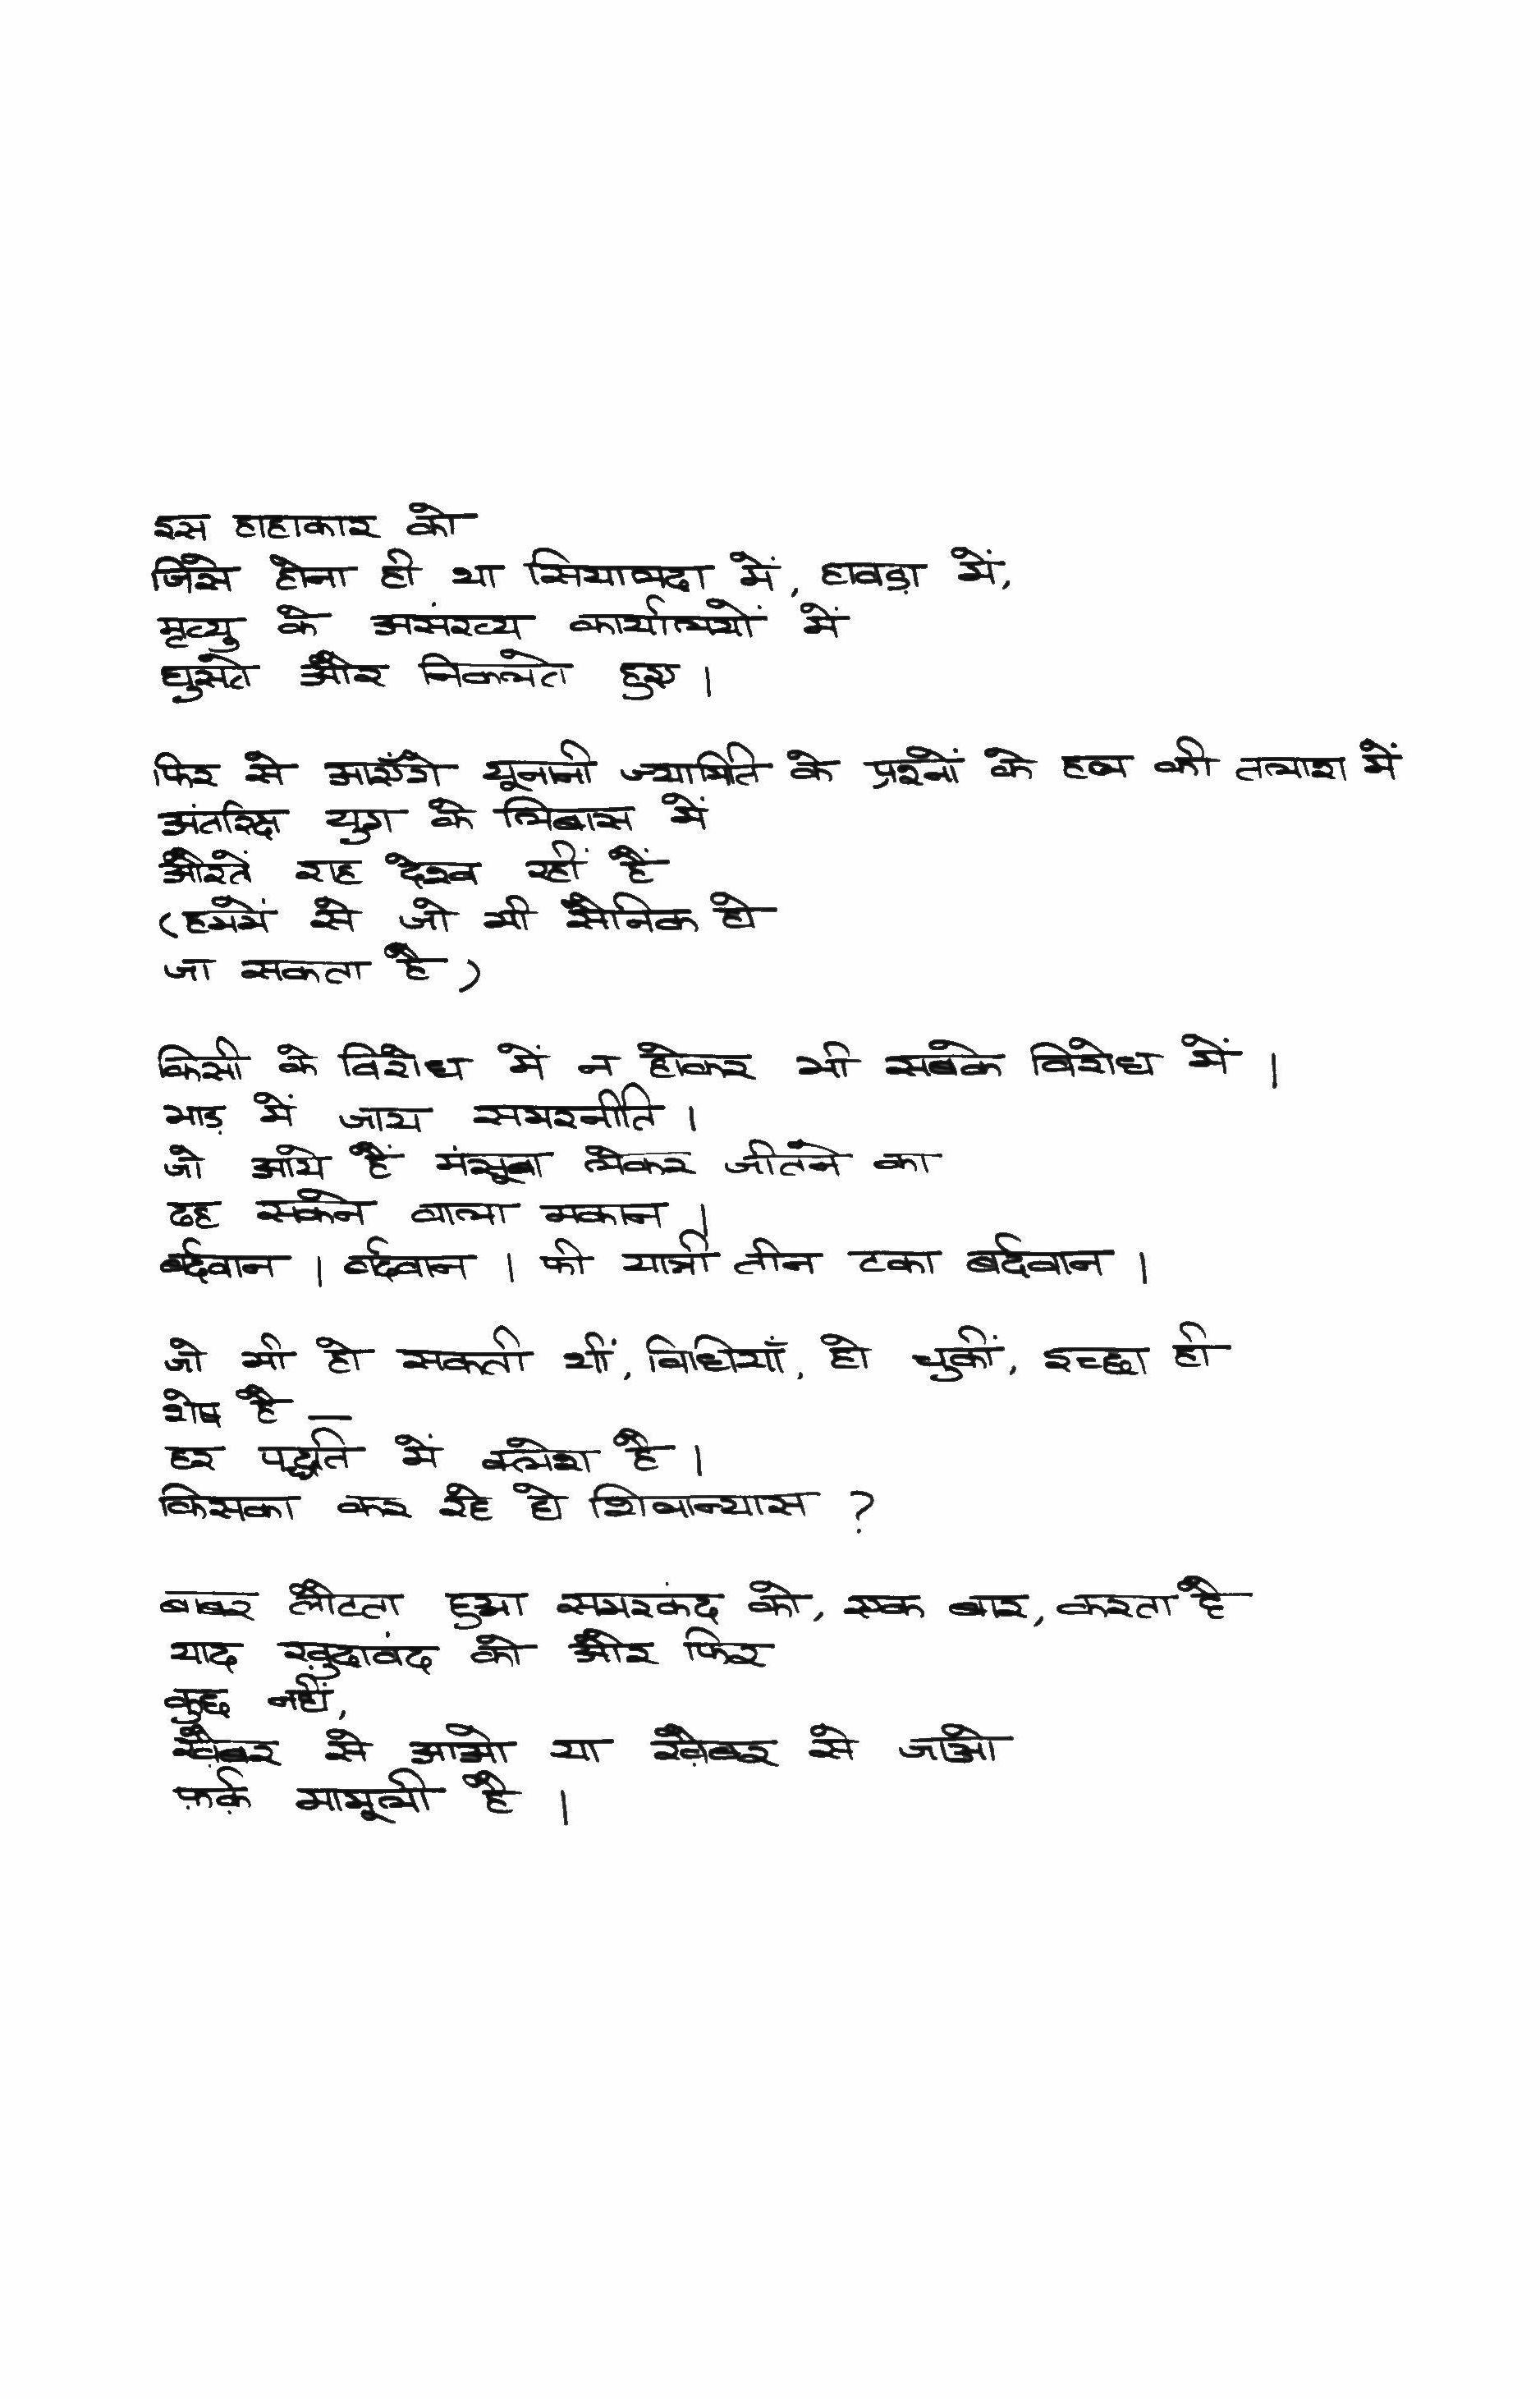 इस हाहाकार को
जिसे होना ही था सियालदा में, हावड़ा में,
मृत्यु के असंख्य कार्यालयों में
घुसते और निकलते हुए ।
फिर से आएँगे यूनानी ज्यामिति के प्रश्नों के हल की तलाश में
अंतरिक्ष युग के लिबास में
औरतें राह देख रहीं हैं
(हममें से जो भी सैनिक हो
जा सकता है)
किसी के विरोध में न होकर भी सबके विरोध में ।
भाड़ में जाय समरनीति ।
जो आये हैं मंसूबा लेकर जीतने का
ढह सकने वाला मकान ।
बर्दवान । बर्दवान । फी यात्री तीन टका बर्दवान ।
जो भी हो सकती थीं, विधियाँ, हो चुकीं, इच्छा ही
शेष है —
हर पद्धति में क्लेश है ।
किसका कर रहे हो शिलान्यास ?
बाबर लौटता हुआ समरकंद को, एक बार, करता है
याद ख़ुदावंद को और फिर
कुछ नहीं,
ख़ैबर से आओ या ख़ैबर से जाओ
फ़र्क़ मामूली है ।